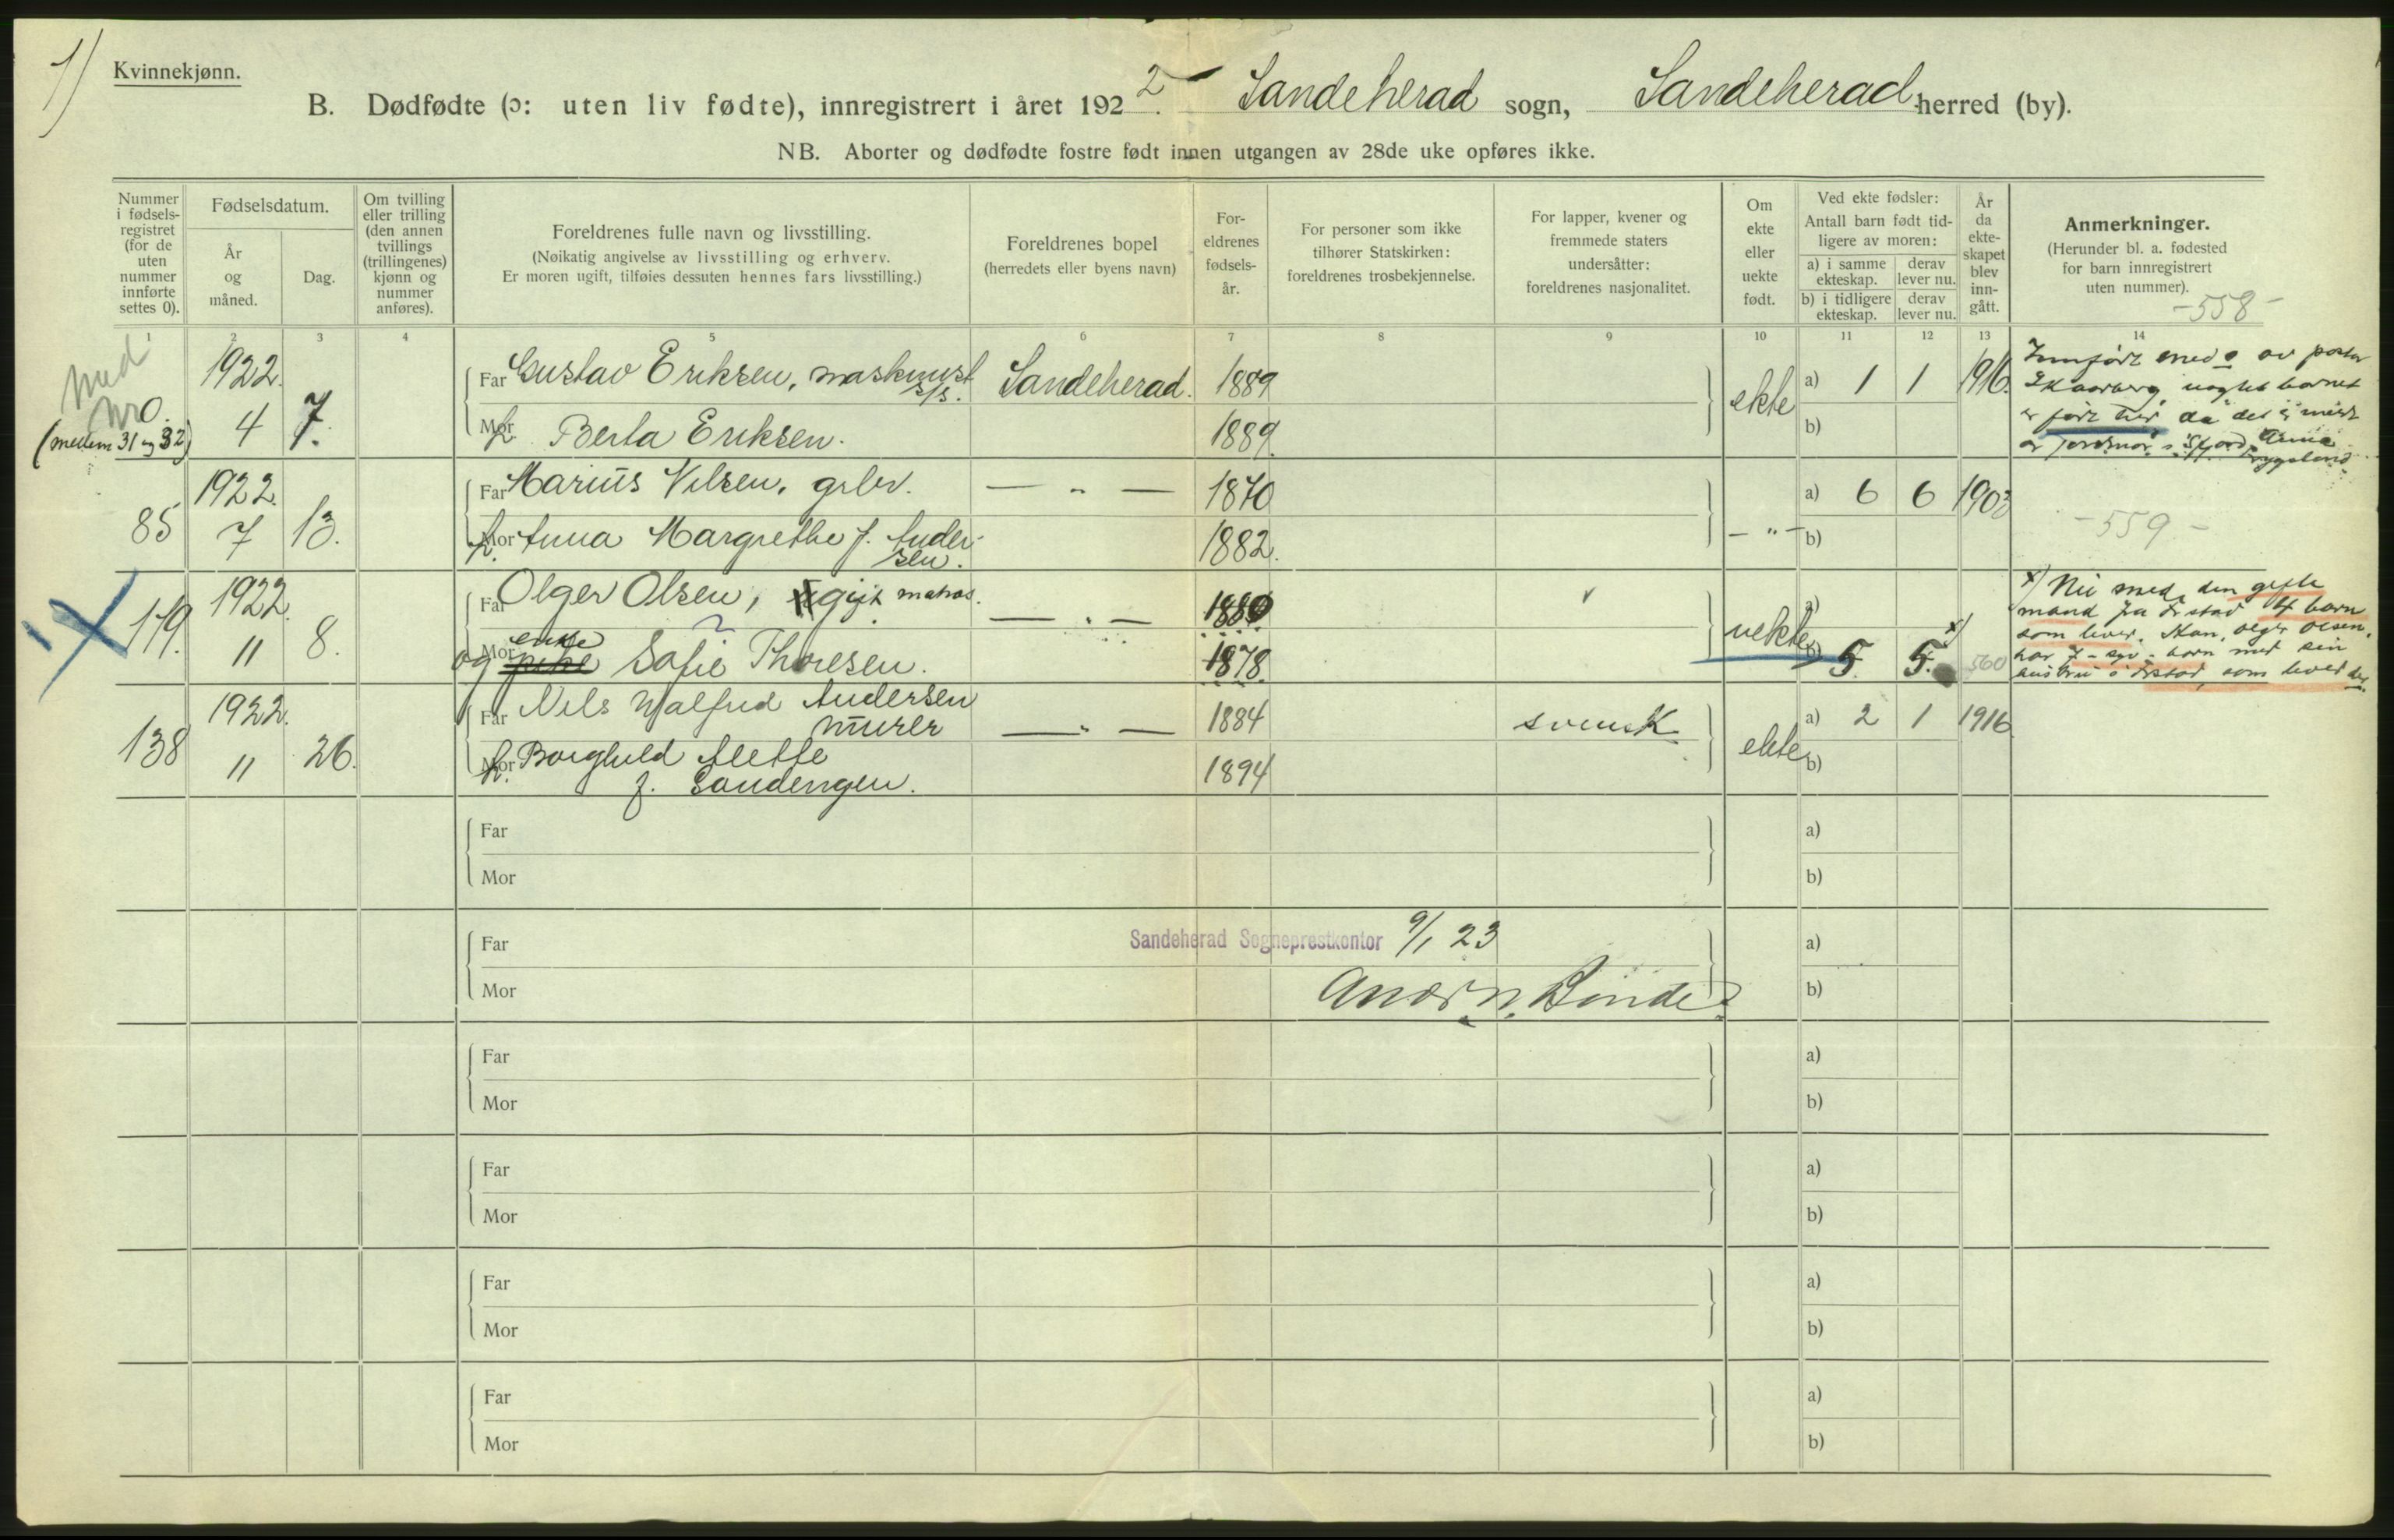 1)
Kvinnekjønn.
B. Dødfødte (ɔ: uten liv fødte), innregistrert i året 1922. Sandeherad sogn, Sandeherad herred (by).
NB. Aborter og dødfødte fostre født innen utgangen av 28de uke opføres ikke.
Nummer
i fødsels-
registret
(for de
uten
nummer
innførte
settes 0).
Fødselsdatum.
År
og
måned.
Dag.
Om tvilling
eller trilling
(den annen
tvillings
(trillingenes)
kjønn og
nummer
anføres).
Foreldrenes fulle navn og livsstilling.
(Nøikatig angivelse av livsstilling og erhverv.
Er moren ugift, tilføies dessuten hennes fars livsstilling.)
Foreldrenes bopel
(herredets eller byens navn)
For-
eldrenes
fødsels-
år.
For personer som ikke
tilhører Statskirken:
foreldrenes trosbekjennelse.
For lapper, kvener og
fremmede staters
undersåtter:
foreldrenes nasjonalitet.
Om
ekte
eller
uekte
født.
Ved ekte fødsler:
Antall barn født tid-
ligere av moren:
a) i samme
ekteskap.
derav
lever nu.
b) i tidligere
ekteskap.
derav
lever nu.
År
da
ekte-
skapet
blev
inn-
gått.
Anmerkninger.
(Herunder bl. a. fødested
for barn innregistrert
uten nummer).
-558-
1 2 3 4 5 6 7 8 9 10 11 12 13 14
med
nr 0.
(mellem 31 og 32)
1922.
4 7.
Far Gustav Eriksen, maskinist
s/s.
Sandeherad. 1889
Mor h. Berta Eriksen. 1889.
ekte
a) 1 1 1916.
b)
Innført med 0 av pastor
Skaarberg, uagtet barnet
er ført her, da det
85
1922.
7 13.
Far Marius Nilsen, grbr. — " — 1870
Mor h. Anna Margrethe f. Ander-
sen. 1882.
— " —
a) 6 6 1903
b)
-559-
119.
1922.
11 8.
Far Olger Olsen, gift matros. — " — 1880
Mor enke
og pike Sofie Thoresen. 1878.
uekte
a)
b) 5 5. x)
560
x) Nu med den gifte
mand fra Ørstad 4 barn
som lever. Han, Olger Olsen,
har 7 - syv - barn med sin
hustru i Ørstad, som lever der
138
1922.
11 26.
Far Nils Walfrid Andersen
murer — " — 1884 svensk
Mor h. Borghild Alette
f. Sandengen. 1894
ekte
a) 2 1 1916
b)
Far a)
Mor b)
Sandeherad Sogneprestkontor 9/1 23
Far a)
Mor b)
Far a)
Mor b)
Far a)
Mor b)
Far a)
Mor b)
Far a)
Mor b)